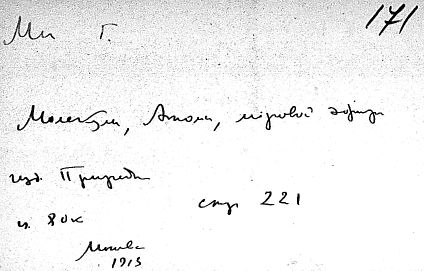 171
Ми Г.
Молекулы, Атомы, мировой эфир
изд. Природа
стр 221
ц. 80к
Москва
1913